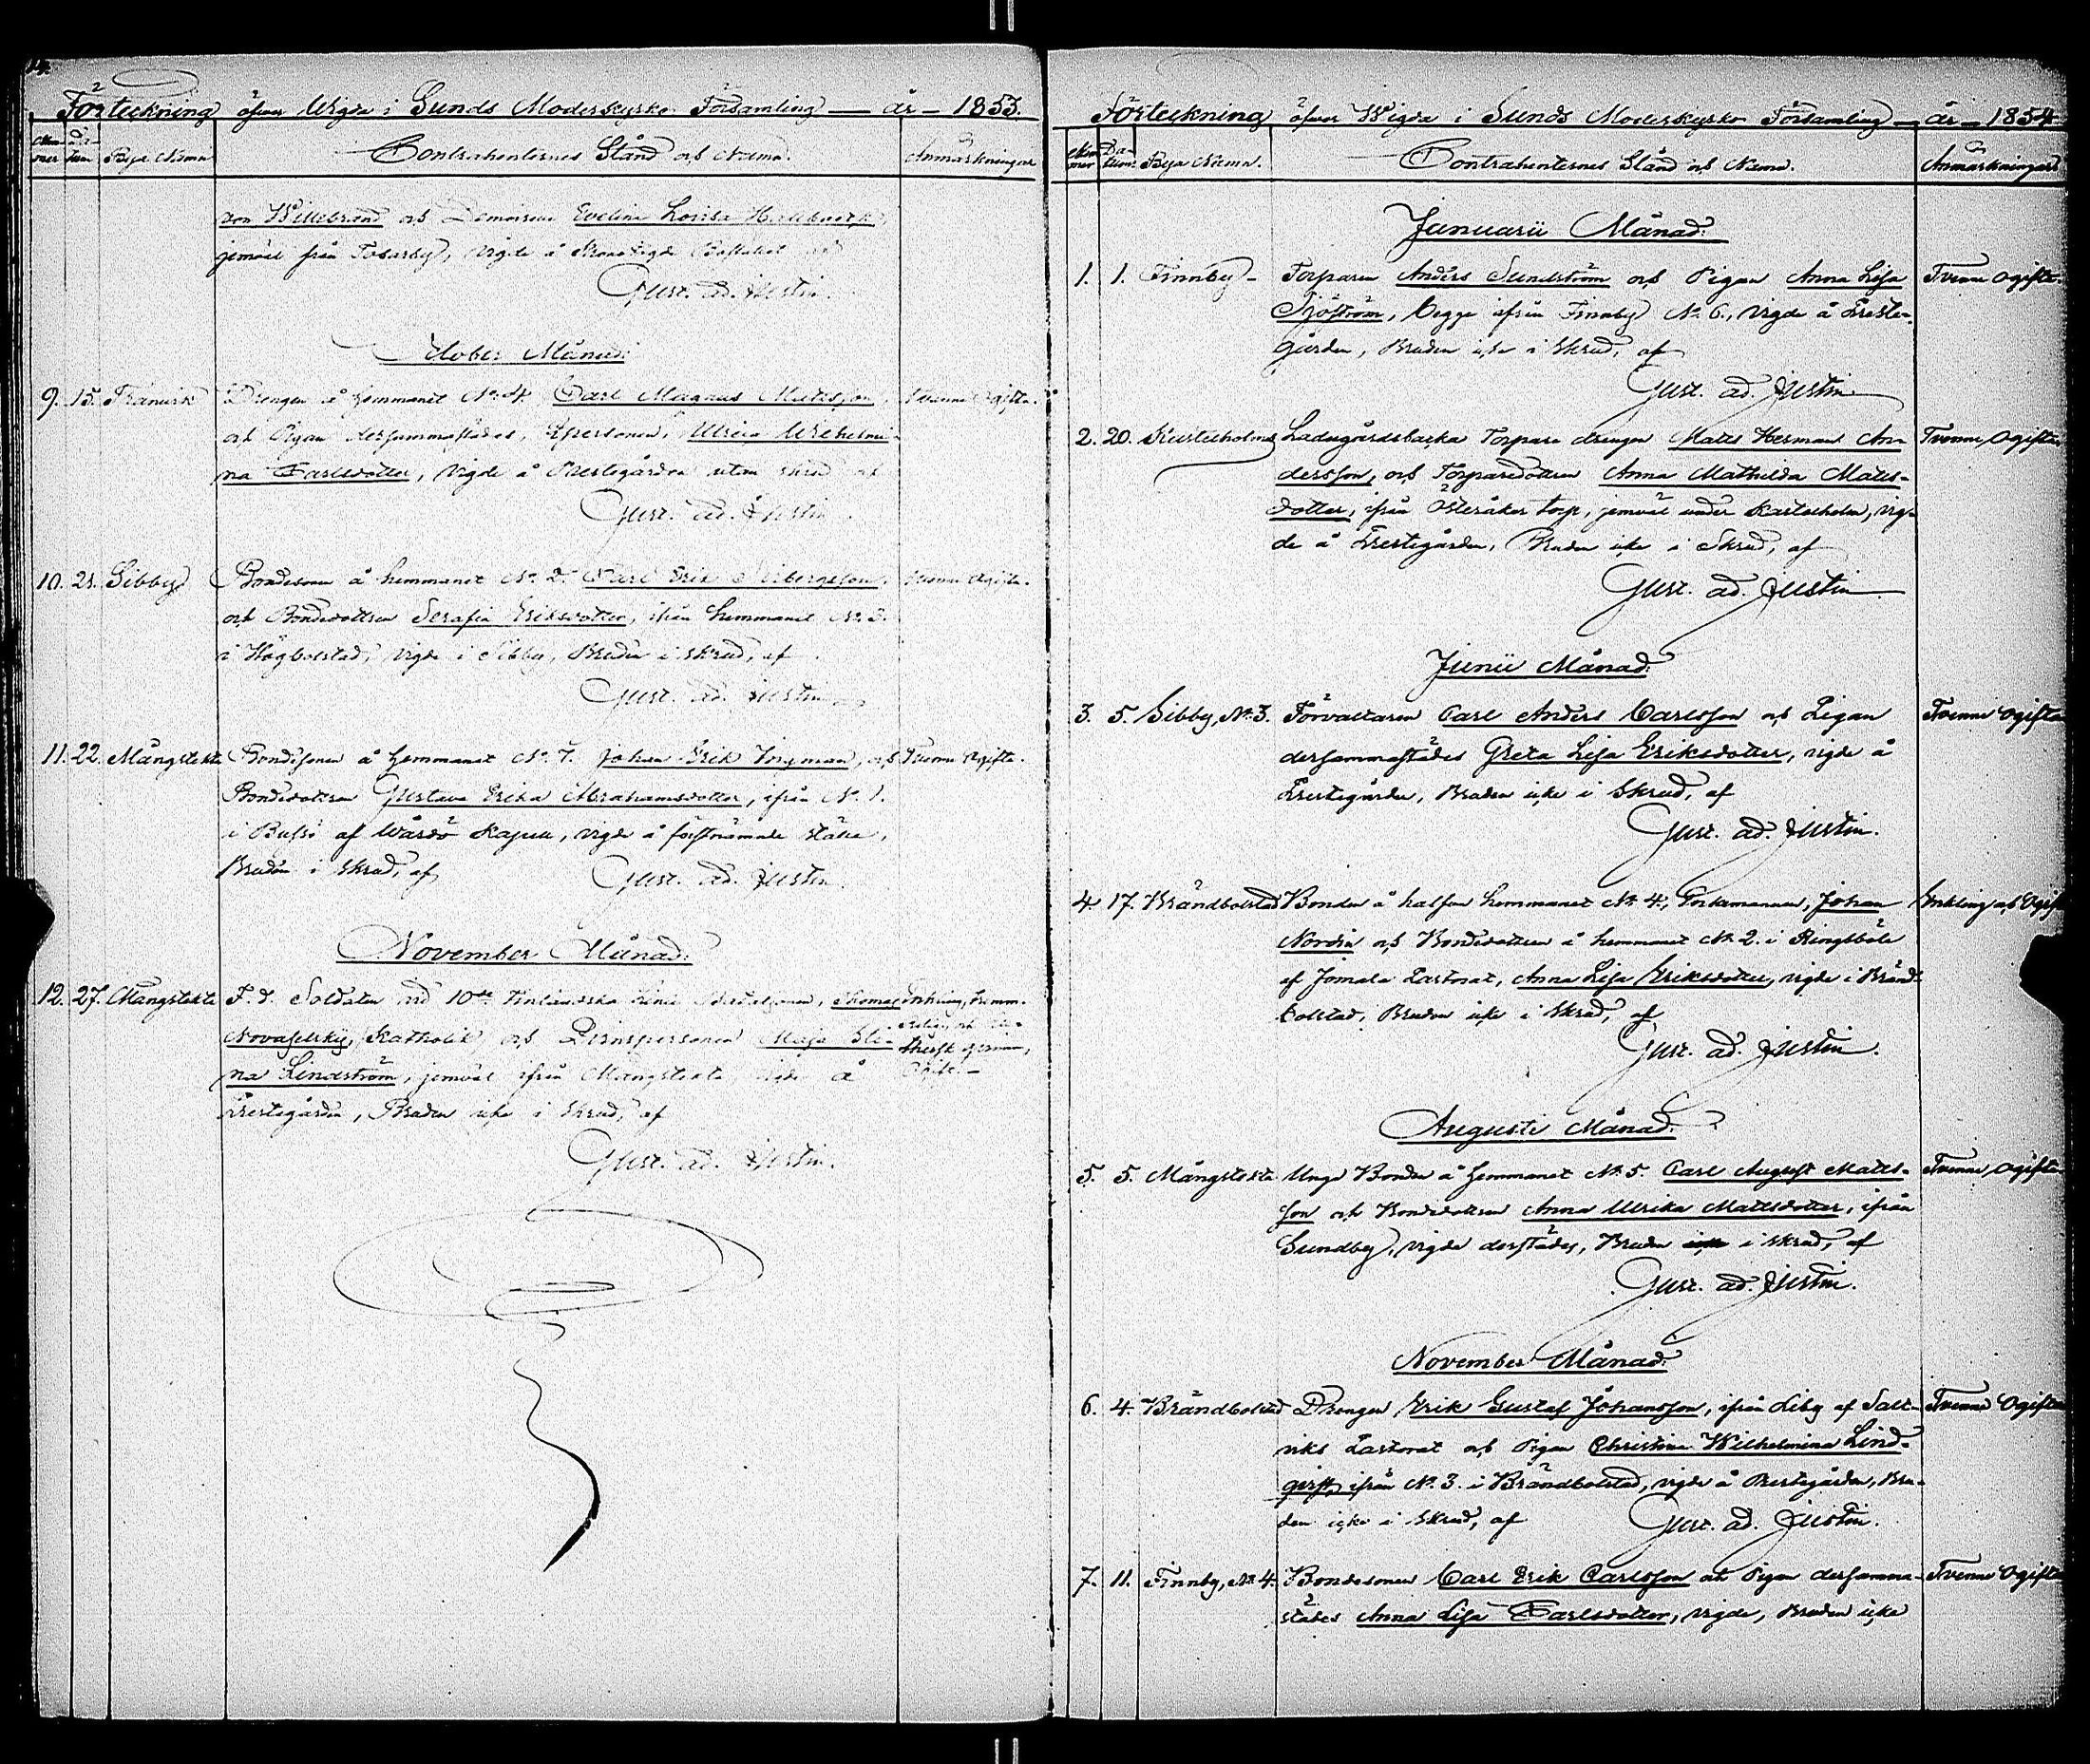 Förteckning öfver Wigda i Sunds Moderkyrko Församling — år — 1853.
Num-mer Da-tum Bya Namn Contrahenternes Stånd och Namn. Anmärkningar
von Willebrand och Demoiselle Evelina Lovisa
jemväl från Tosarby, vigde å Bostället
Gust. Ad. Justin.
October Månad:
9. 15. Tranvik Drengen å hemmanet No 4. Carl Magnus Matsson, Tvenne Ogifta.
och Pigan dersammastädes, Ulrica Wilhelmi-
na Carlsdotter, vigde å Prestegården utan skrud af
Gust. Ad. Justin.
10. 21. Sibby Bondesonen å hemmanet No 2. Carl Erik Tvenne Ogifta.
och Bondedottren Serafia Eriksdotter, ifrån hemmanet No 3.
i Högbolstad, vigde i Sibby, Bruden i skrud, af
Gust. Ad. Justin
11. 22. Mångstekta Bondesonen å hemmanet No 7. Johan Erik, och Tvenne Ogifta.
Bondedottren Gustava Erika Abrahamsdotter, ifrån No 1.
i Bussö af Wårdö Kapell, vigde å förstnämnde ställe,
Bruden i skrud, af Gust. Ad. Justin.
November Månad:
12. 27. Mångstekta F. d. Soldaten vid 10de Finländska Linie Bataljonen, Thomas Enkling,
Novaselsky, Katholik, och Qvinspersonen Maja Ste-
na Lindström, jemväl ifrån Mångstekta, vigde å
Prestegården, Bruden icke i skrud, af
Gust. Ad. Justin.
Förteckning öfver Wigda i Sunds Moderkyrko Församling — år — 1854
Num-mer Da-tum Bya Namn. Contrahenternes Stånd och Namn. Anmärkningar
Januarii Månad:
1. 1. Finnby – Torparen Anders Sundström och Pigan Anna Lisa Tvenne Ogifta.
Sjöström, begge ifrån Finnby No 6., vigde å Preste-
gården, Bruden icke i Skrud, af
Gust. Ad. Justin
2. 20. Kastelholms Ladugårdsbacka Torpare drengen Mats Herman An- Tvenne Ogifta
dersson, och Torparedottren Anna Mathilda Mats-
dotter, ifrån Österåker torp, jemväl under Kastelholm, vig-
de å Prestegården, Bruden icke i Skrud, af
Gust. Ad. Justin
Junii Månad:
3. 5. Sibby, No 3. Förvaltaren Carl Anders Carlsson och Pigan Tvenne Ogifta
dersammastädes Greta Lisa Eriksdotter, vigde å
Prestegården, Bruden icke i Skrud, af
Gust. Ad. Justin.
4. 17. Brändbolstad Bonden å halfva hemmanet No 4., Torkamannen, Johan Enkling och Ogift
Nordin och Bondedottren å hemmanet No 2. i Ringsböle
af Jomala Pastorat, Anna Lisa Eriksdotter, vigde i Bränd-
bolstad, Bruden icke i Skrud, af
Gust. Ad. Justin.
Augusti Månad:
5. 5. Mångstekta Unge Bonden å hemmanet No 5. Carl August Mats- Tvenne Ogifta
son och Bondedottren Anna Ulrika Matsdotter, ifrån
Sundby, vigde derstädes, Bruden icke i skrud, af
Gust. Ad. Justin.
November Månad:
6. 4. Brändbolstad Drengen Erik Gustaf Johansson, ifrån Liby af Salt- Tvenne Ogifta
viks Pastorat och Pigan Christina Wilhelmina Lind-
qvist, ifrån No 3. i Brändbolstad, vigde å Prestegården, Bru-
den icke i Skrud, af Gust. Ad. Justin.
7. 11. Finnby, No 4. Bondesonen Carl Erik Carlsson och Pigan dersamma- Tvenne Ogifta
städes Anna Lisa Carlsdotter, vigde, Bruden icke